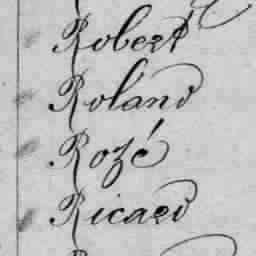 Robert
Roland
Rozé
Ricard